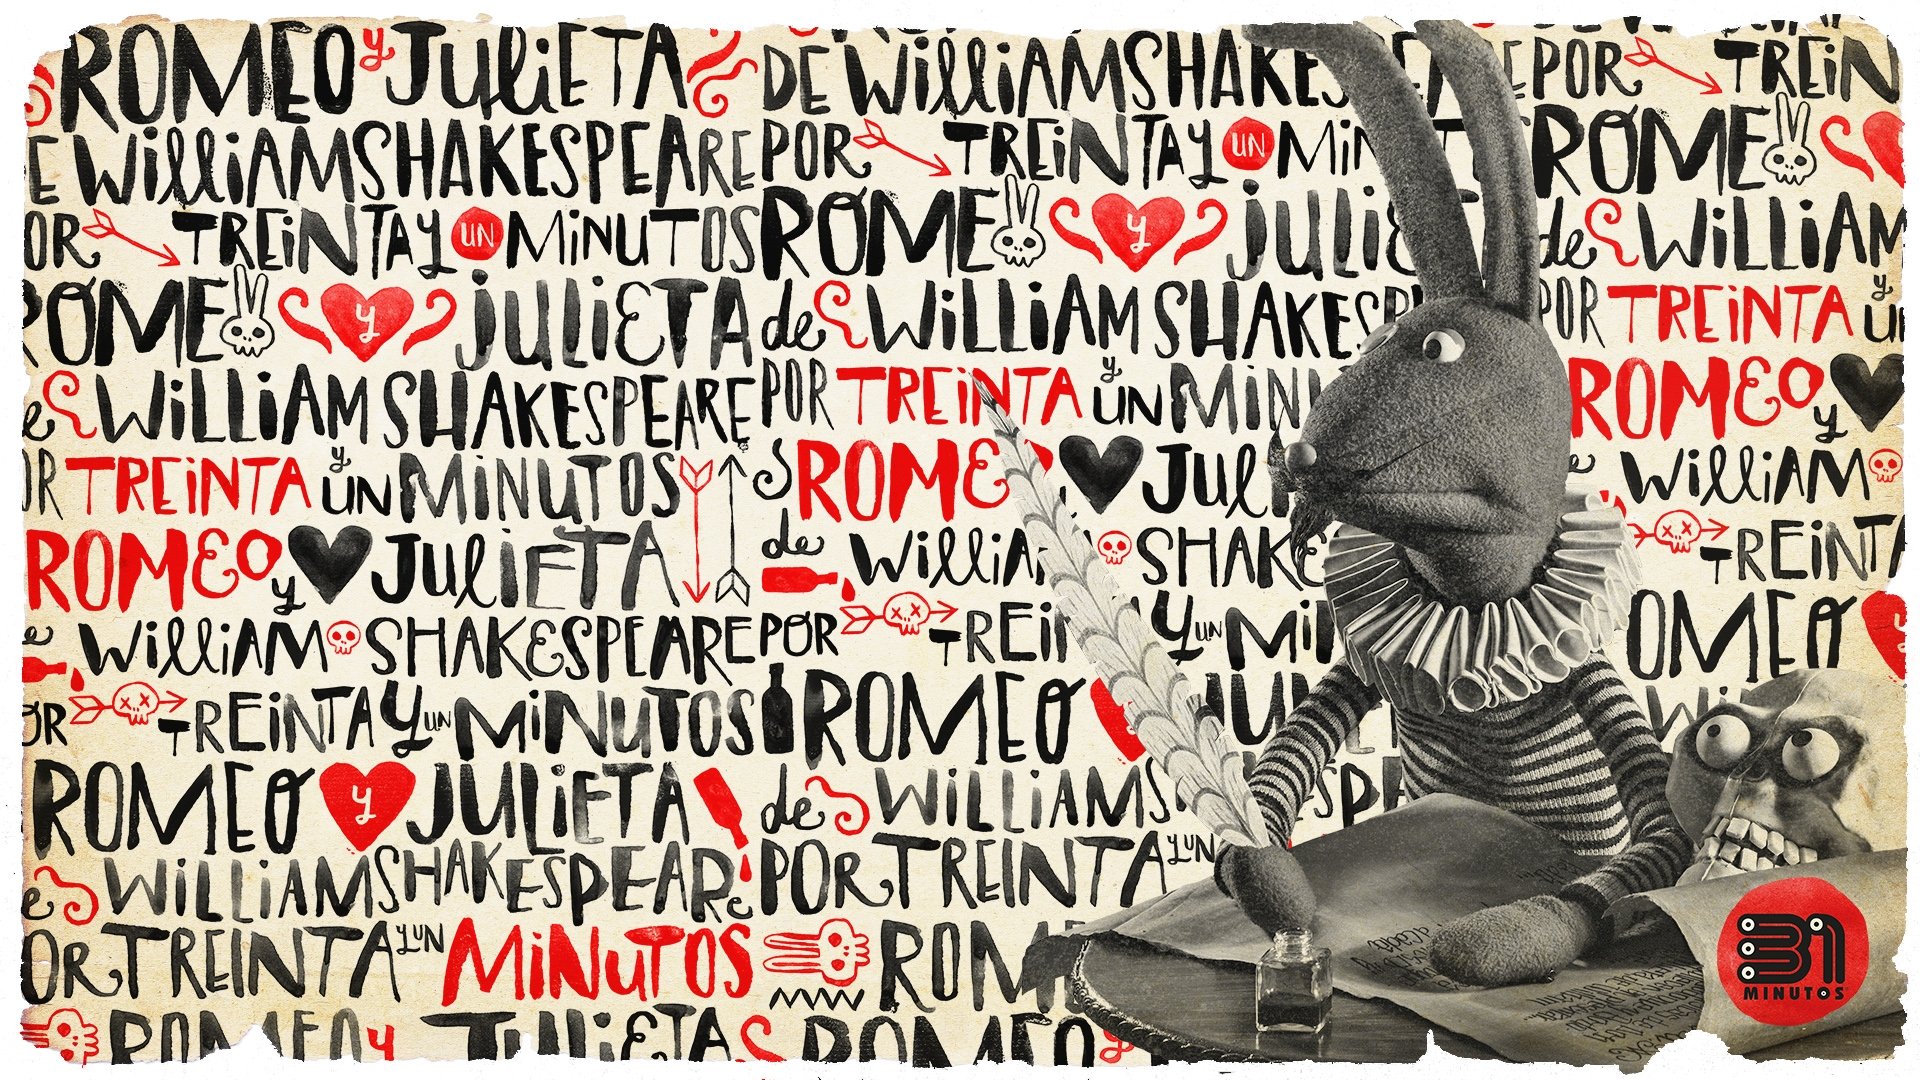 ROMEO y JULiETA DE WilliAM SHAKES EPOR TREiN
E WilliAM SHAKESPEARE POR TREiNTA y UN MiN ROME
OR TREiNTA y UN MiNUTOS ROME y JULiE de WiLLiAM
ROME y JULiETA de WiLLiAM SHAKESP POR TREiNTA y U
e WiLLiAM SHAKESPEARE POR TREiNTA y UN MiNU ROMEO y
OR TREiNTA y UN MiNUTOS S ROMEO JUL e WilliAM
ROMEO y JUliETA de WilliA SHAKE TREiNTA
e WilliAM SHAKESPEARE POR TREi y UN Mi OMEO
OR TREiNTA y UN MiNUTOS ROMEO JUL Wi
ROMEO y JULiETA de WiLLiAM S SPE
e WiLLiAM SHAKESPEARE POR TREiNTA y UN
OR TREiNTA y UN MiNUTOS ROM
ROMEO y JULiETA S ROMEO y
31
MINUTOS